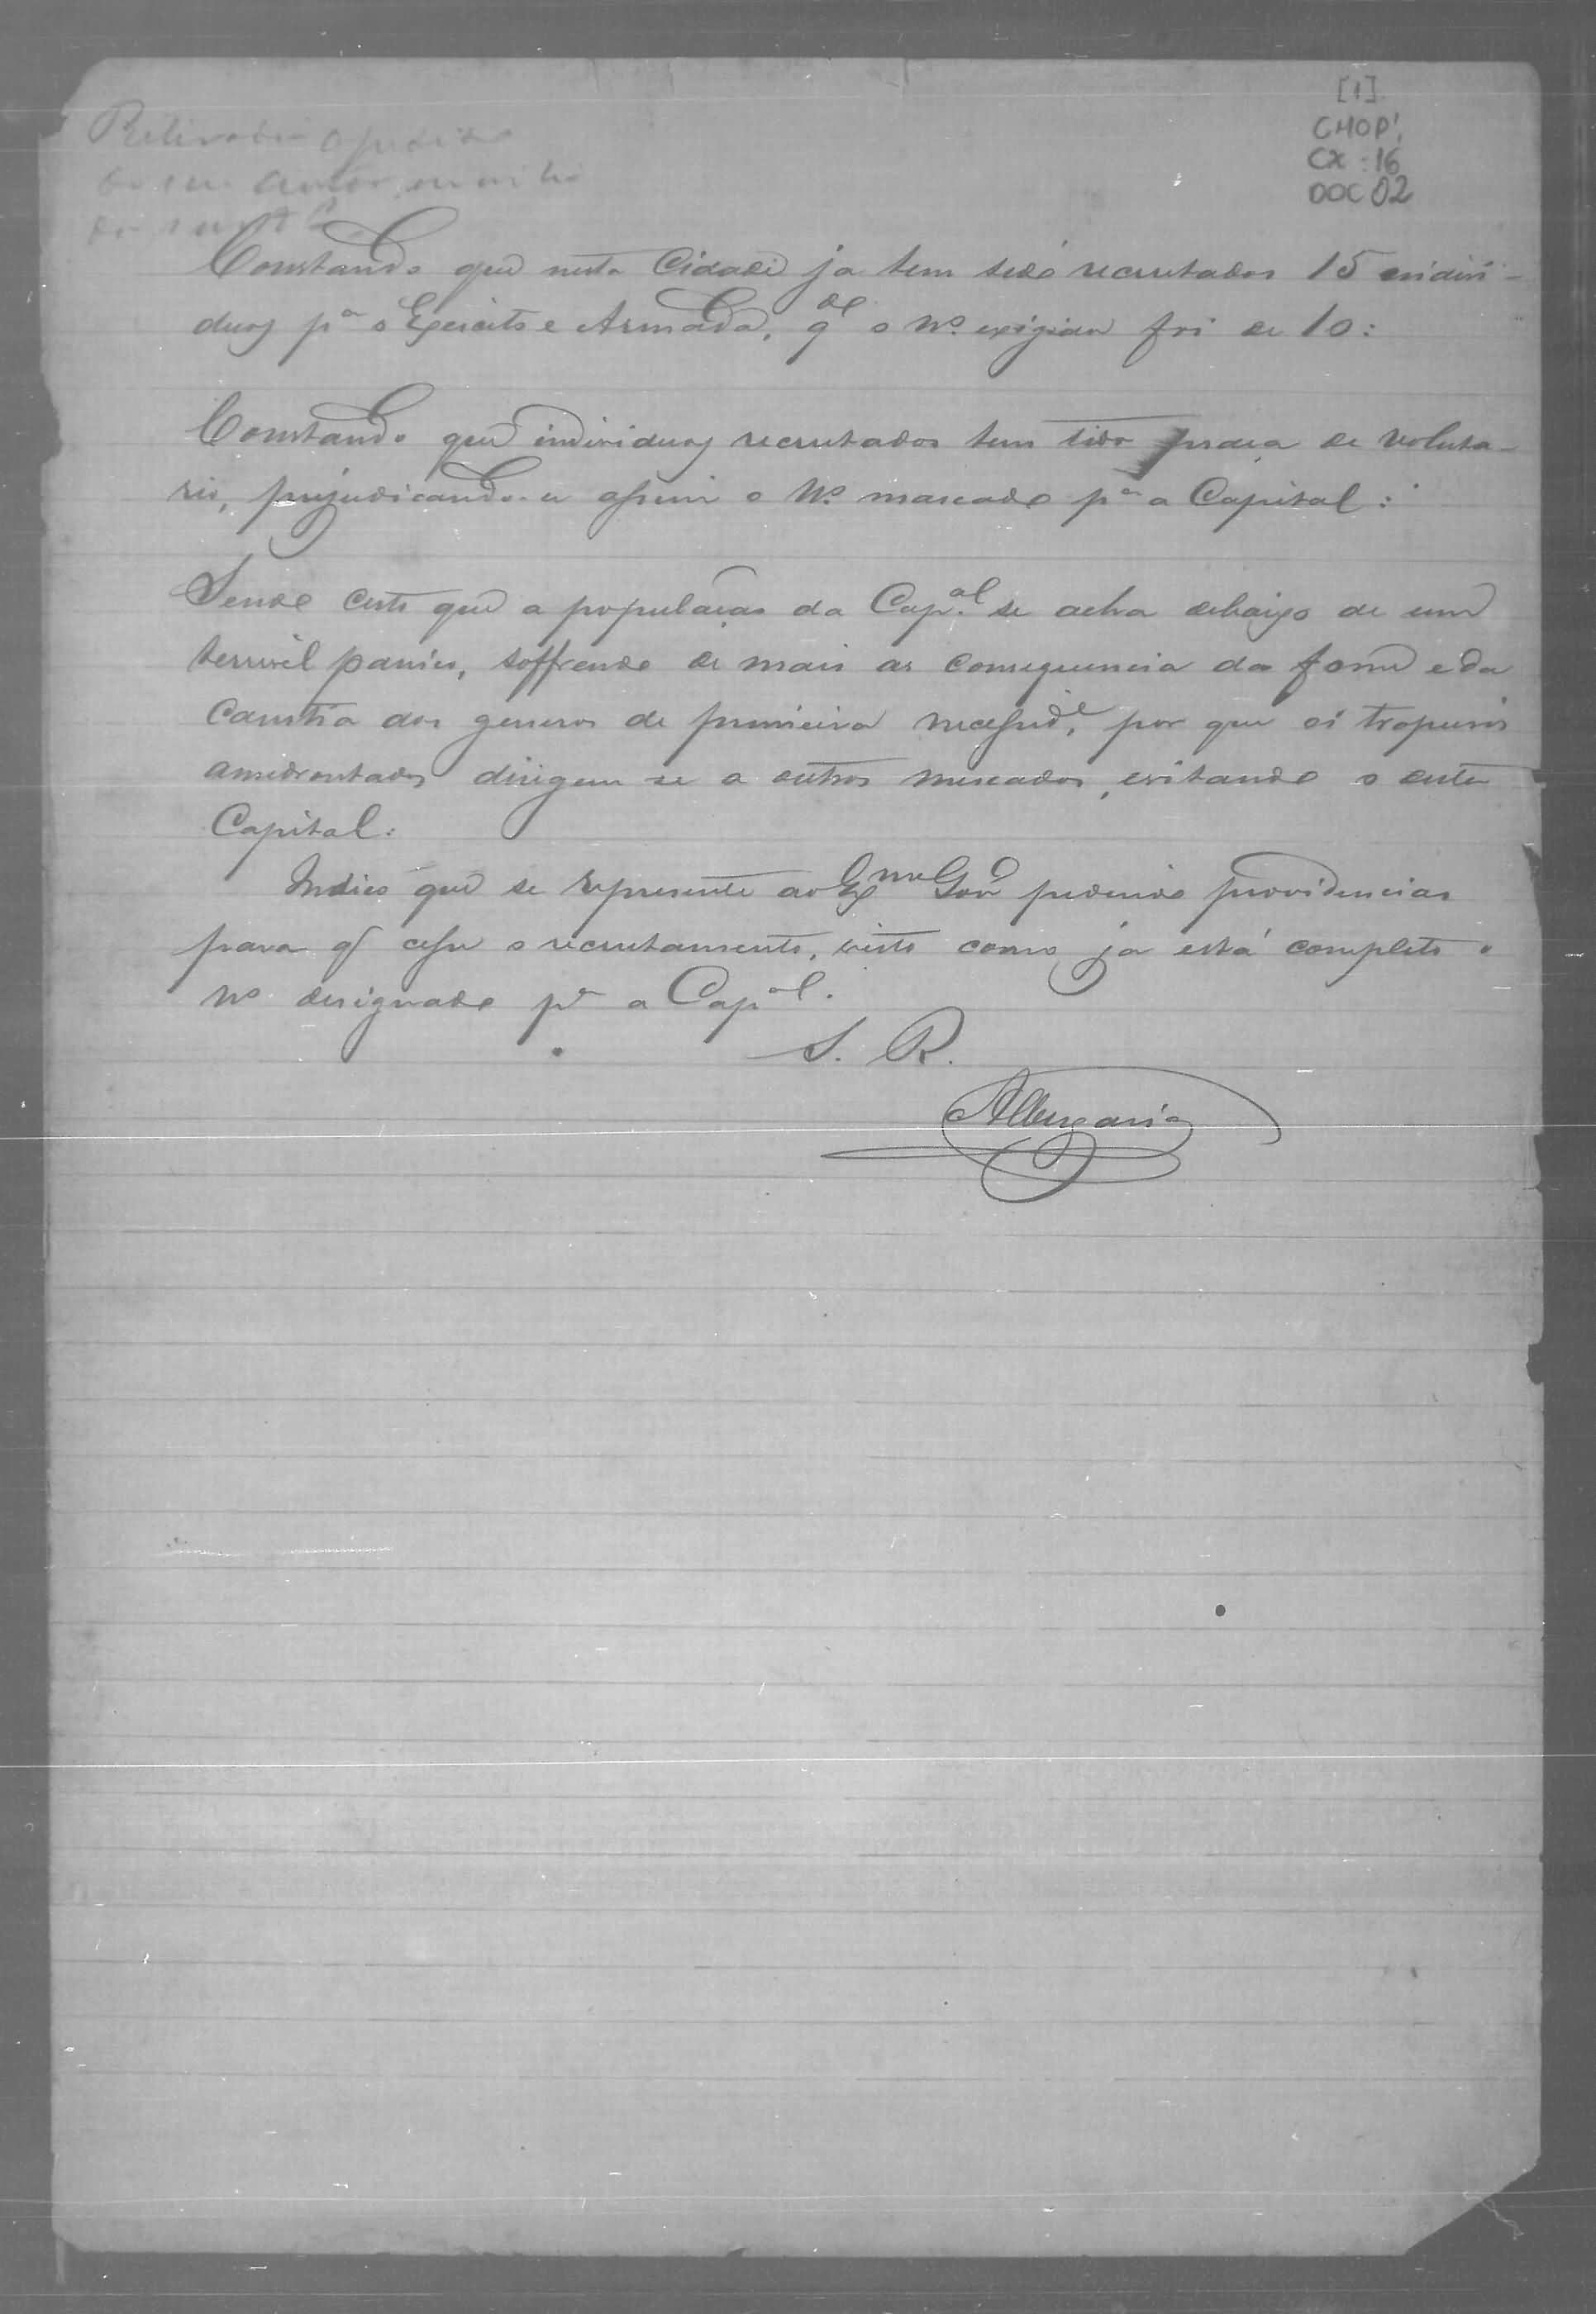 [1]
CMOP!
CX: 16
DOC 02
Retirada a pedido
do seu autor
Constando que nesta Cidade ja tem sido recrutados 15 indivi-
duos pª o Exercito e Armada, qdo o Nº exigido foi de 10:
Constando que individuos recrutados tem tido praça de volunta-
rio, prejudicando-se assim o Nº marcado pª a Capital:
Sendo certo que a populaçao da Cap.al se acha debaixo de um
terrivel panico, soffrendo de mais as consequencia da fome e da
carestia dos generos de primeira necessid.e, por que os tropeiros
amedrontados dirigem se a outros mercados, evitando o desta
Capital:
Indico que se represente ao Exmo Govo pedindo providencias
para q cesse o recrutamento, visto como ja está completo o
Nº designado pª a Cap.al.
S. R.
Albergaria